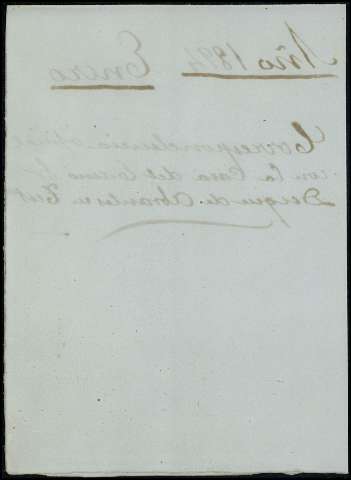 Año 1874
Enero
Correspondencia oficial
con la Casa del Excmo Sr
Duque de Abrantes en